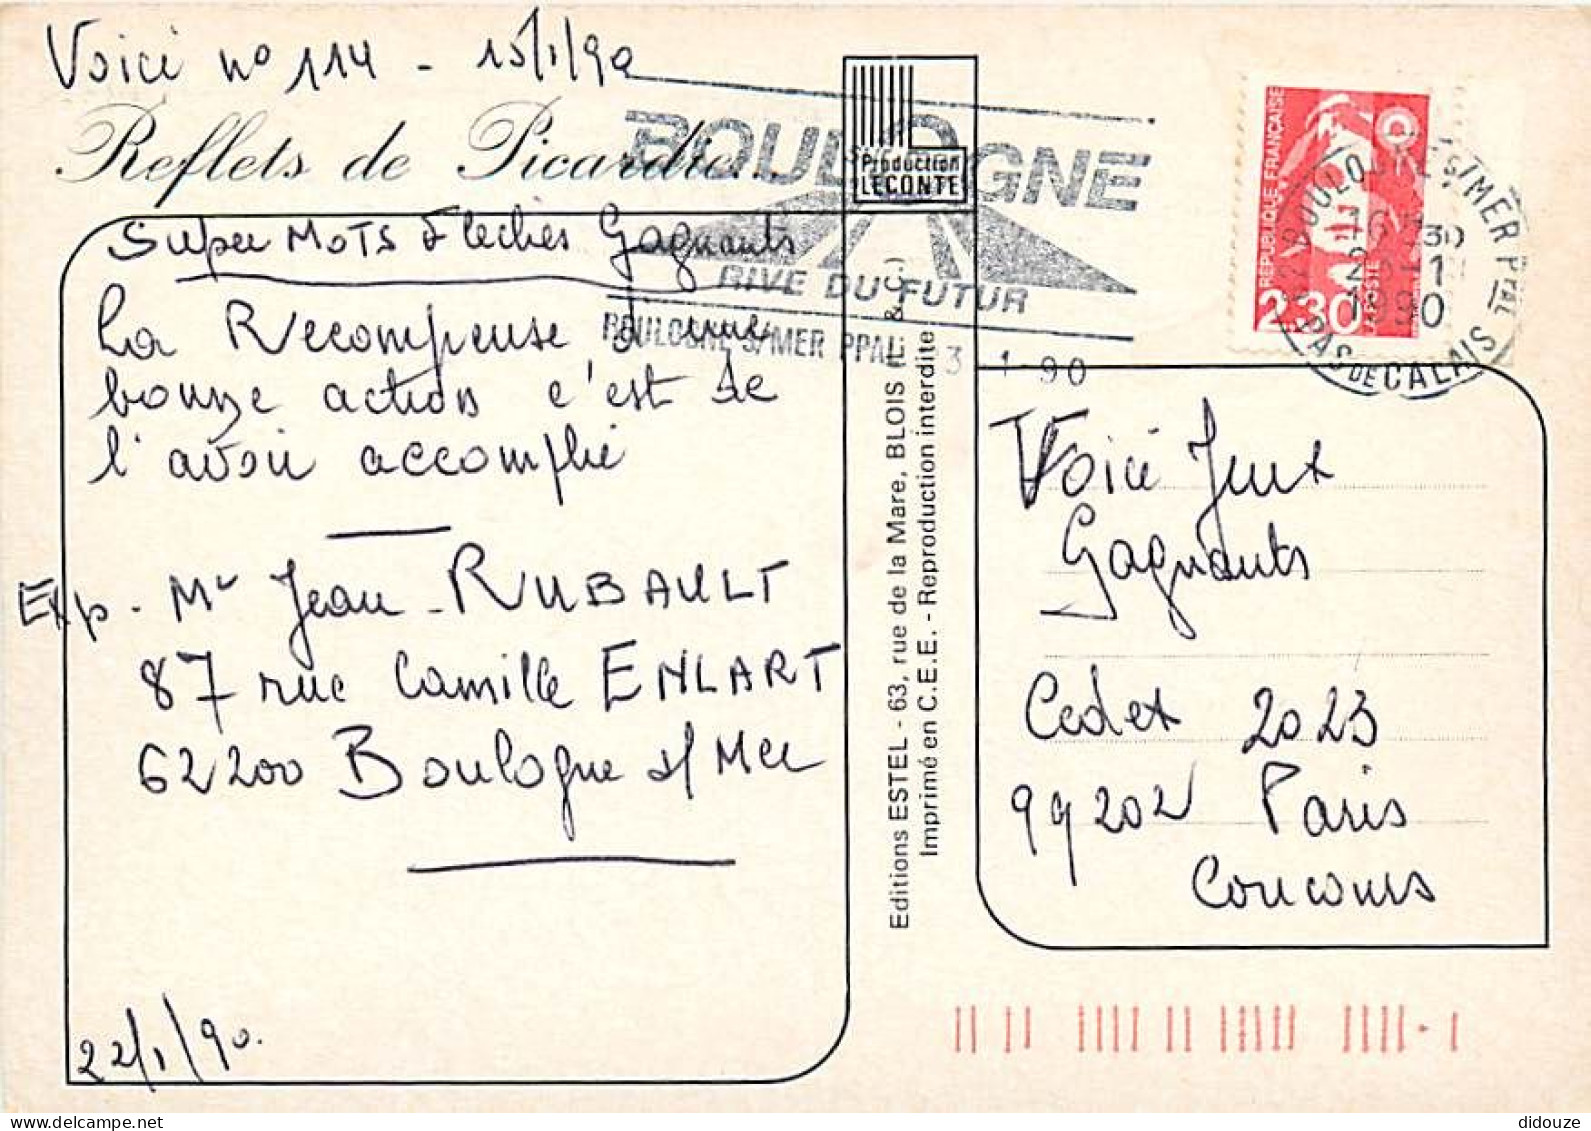 Voici n° 114 - 15/1/90
Reflets de Picardie
Production
LECONTE
BOULOGNE
RIVE DU FUTUR
BOULOGNE S/MER PPAL 3 1-90
RÉPUBLIQUE FRANÇAISE
2,30
LA POSTE
BOULOGNE S/MER PPAL
16 H30
1
1990
PAS DE CALAIS
Super Mots Fléchés Gagnants
La Recompense d'une
bonne action c'est de
l'avoir accomplie
Exp. Mr Jean RUBAULT
87 rue Camille ENLART
62200 Boulogne s/Mer
22/1/90.
Editions ESTEL - 63, rue de la Mare, BLOIS (L. & C.)
Imprimé en C.E.E. - Reproduction interdite
Voici Jeux
Gagnants
Cedex 2023
99202 Paris
Concours
didouze